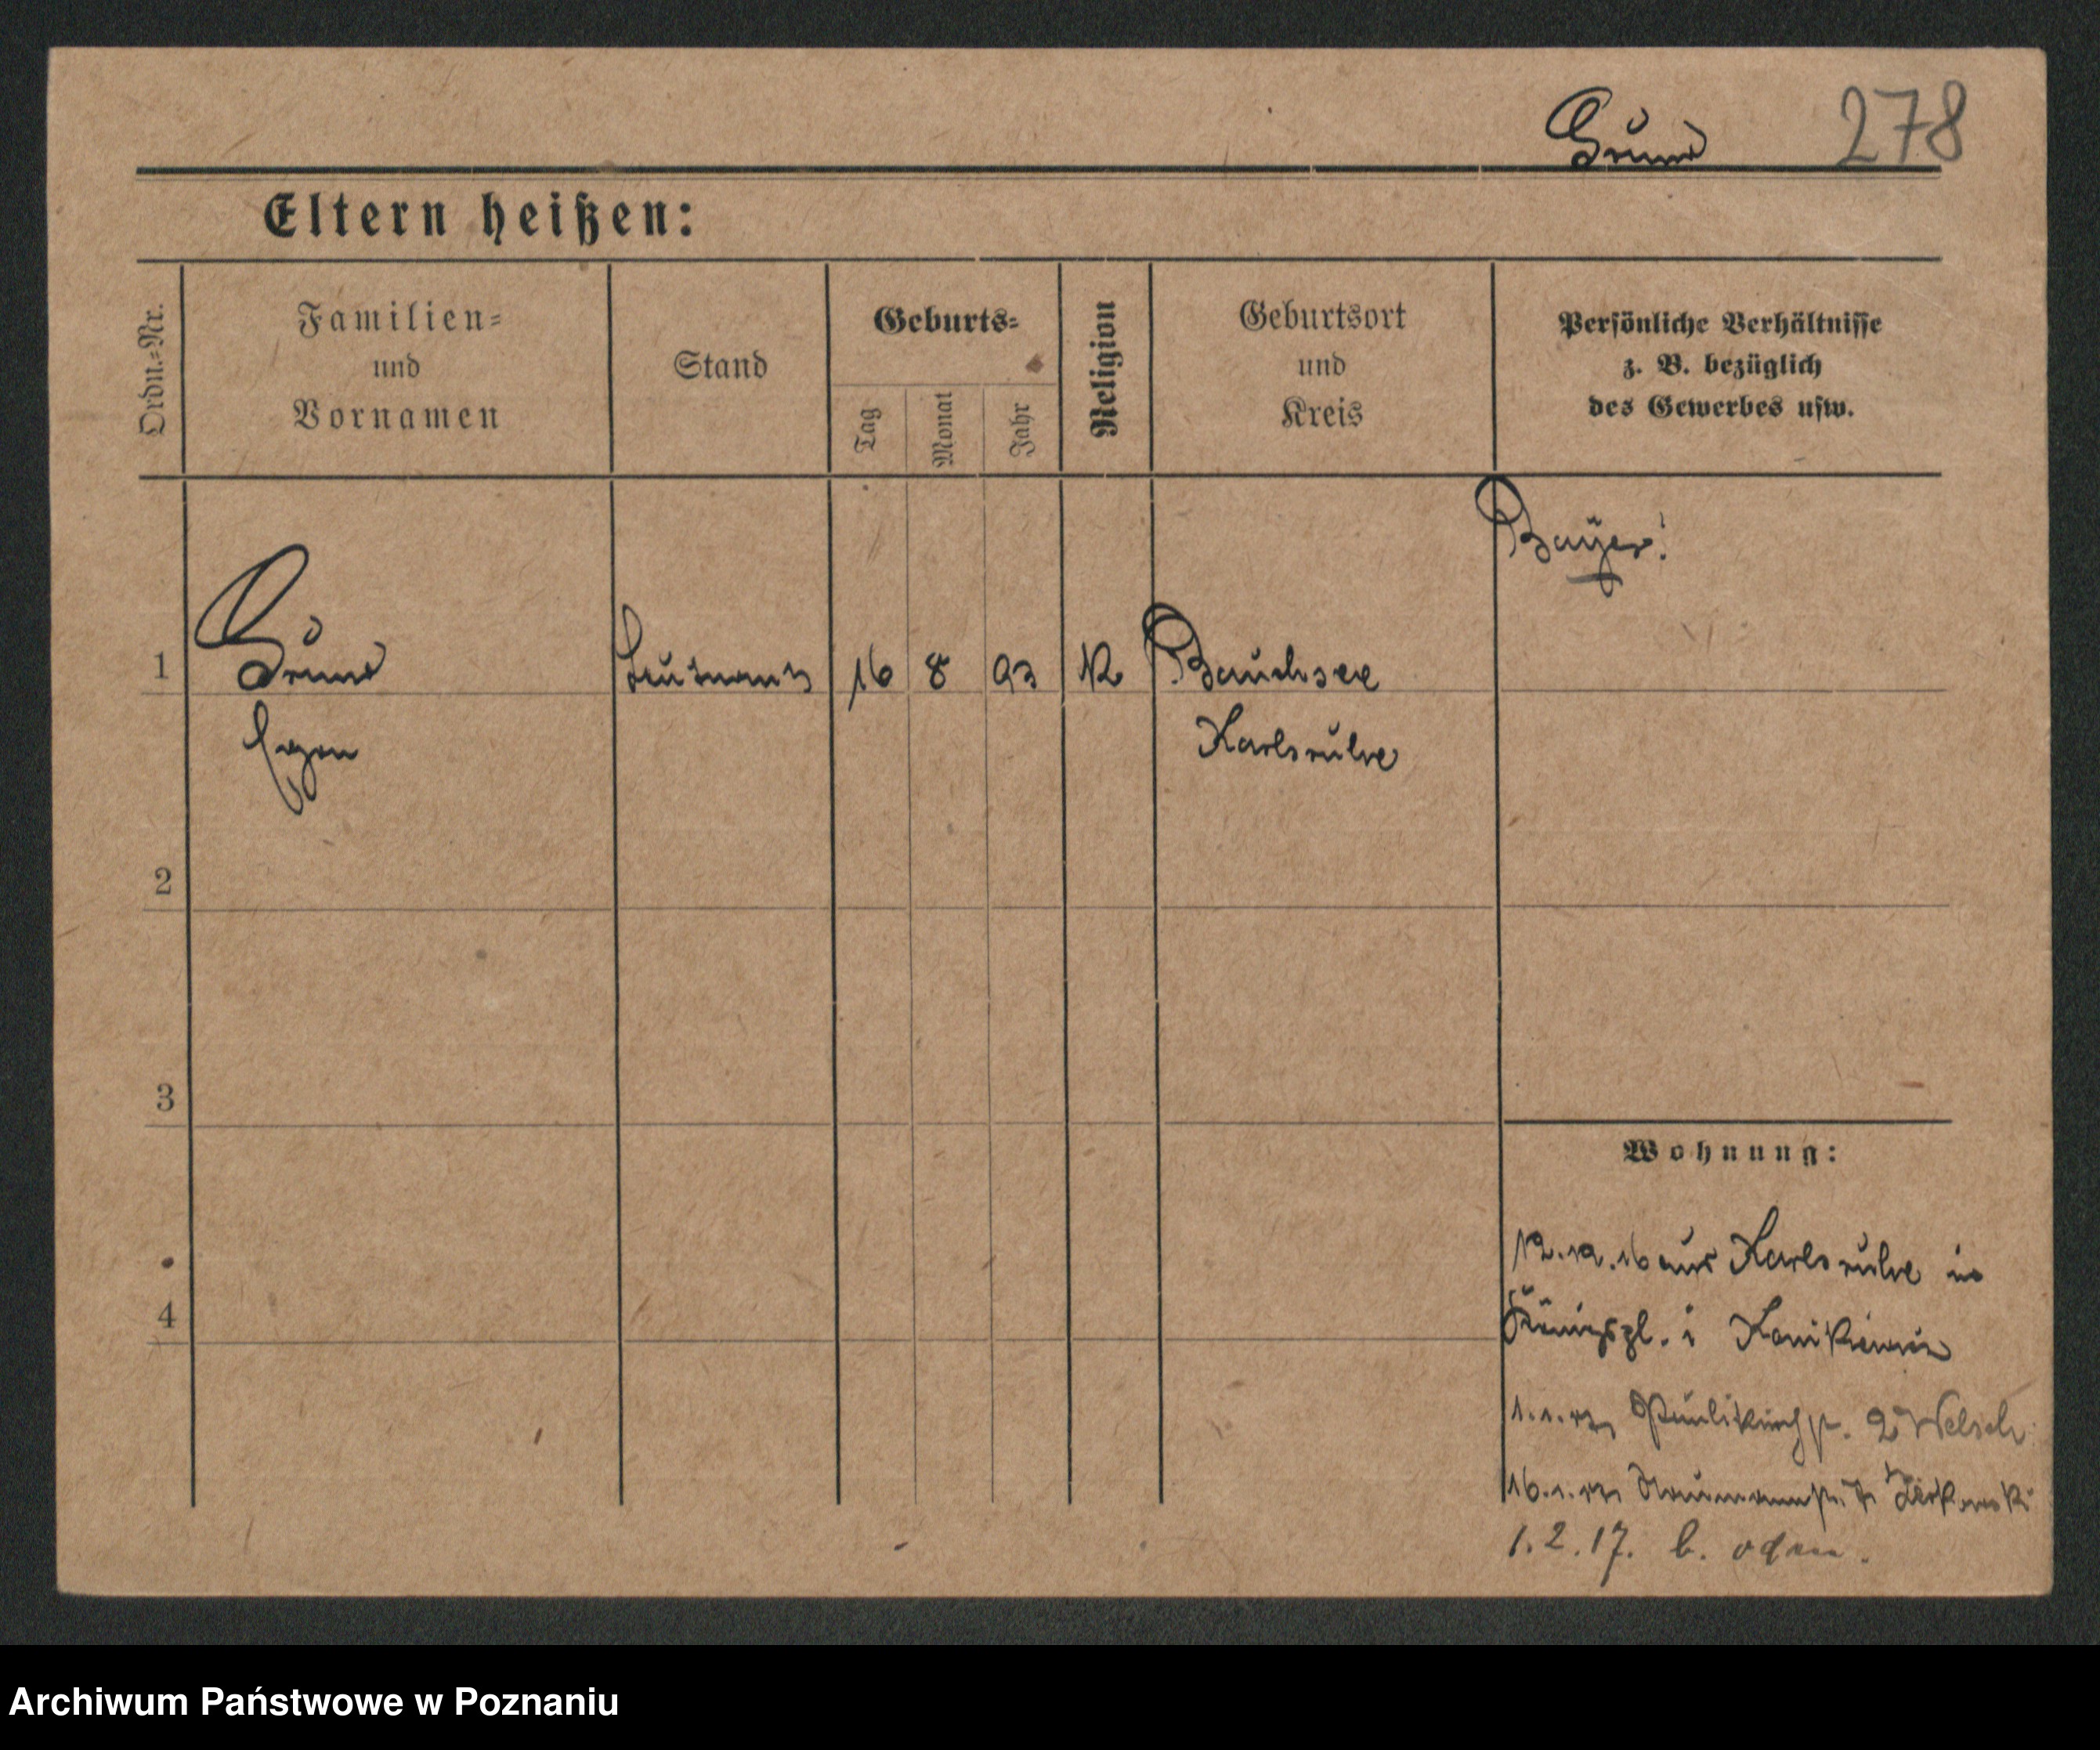 Grund 278
Eltern heißen:
Ordn.=Nr.
Familien=
und
Vornamen
Stand
Geburts=
Tag
Monat
Jahr
Religion
Geburtsort
und
Kreis
Persönliche Verhältnisse
z. B. bezüglich
des Gewerbes usw.
Bayer!
1 Grund Leutnant 16 8 93 K
Egon Karlsruhe
2
3
4
Wohnung:
12.12.16 aus Karlsruhe in
Königspl.
1.1.17 Paulikirchstr. 2 Welsch
16.1.17 Naumannstr. 7
1.2.17. b.
Archiwum Państwowe w Poznaniu